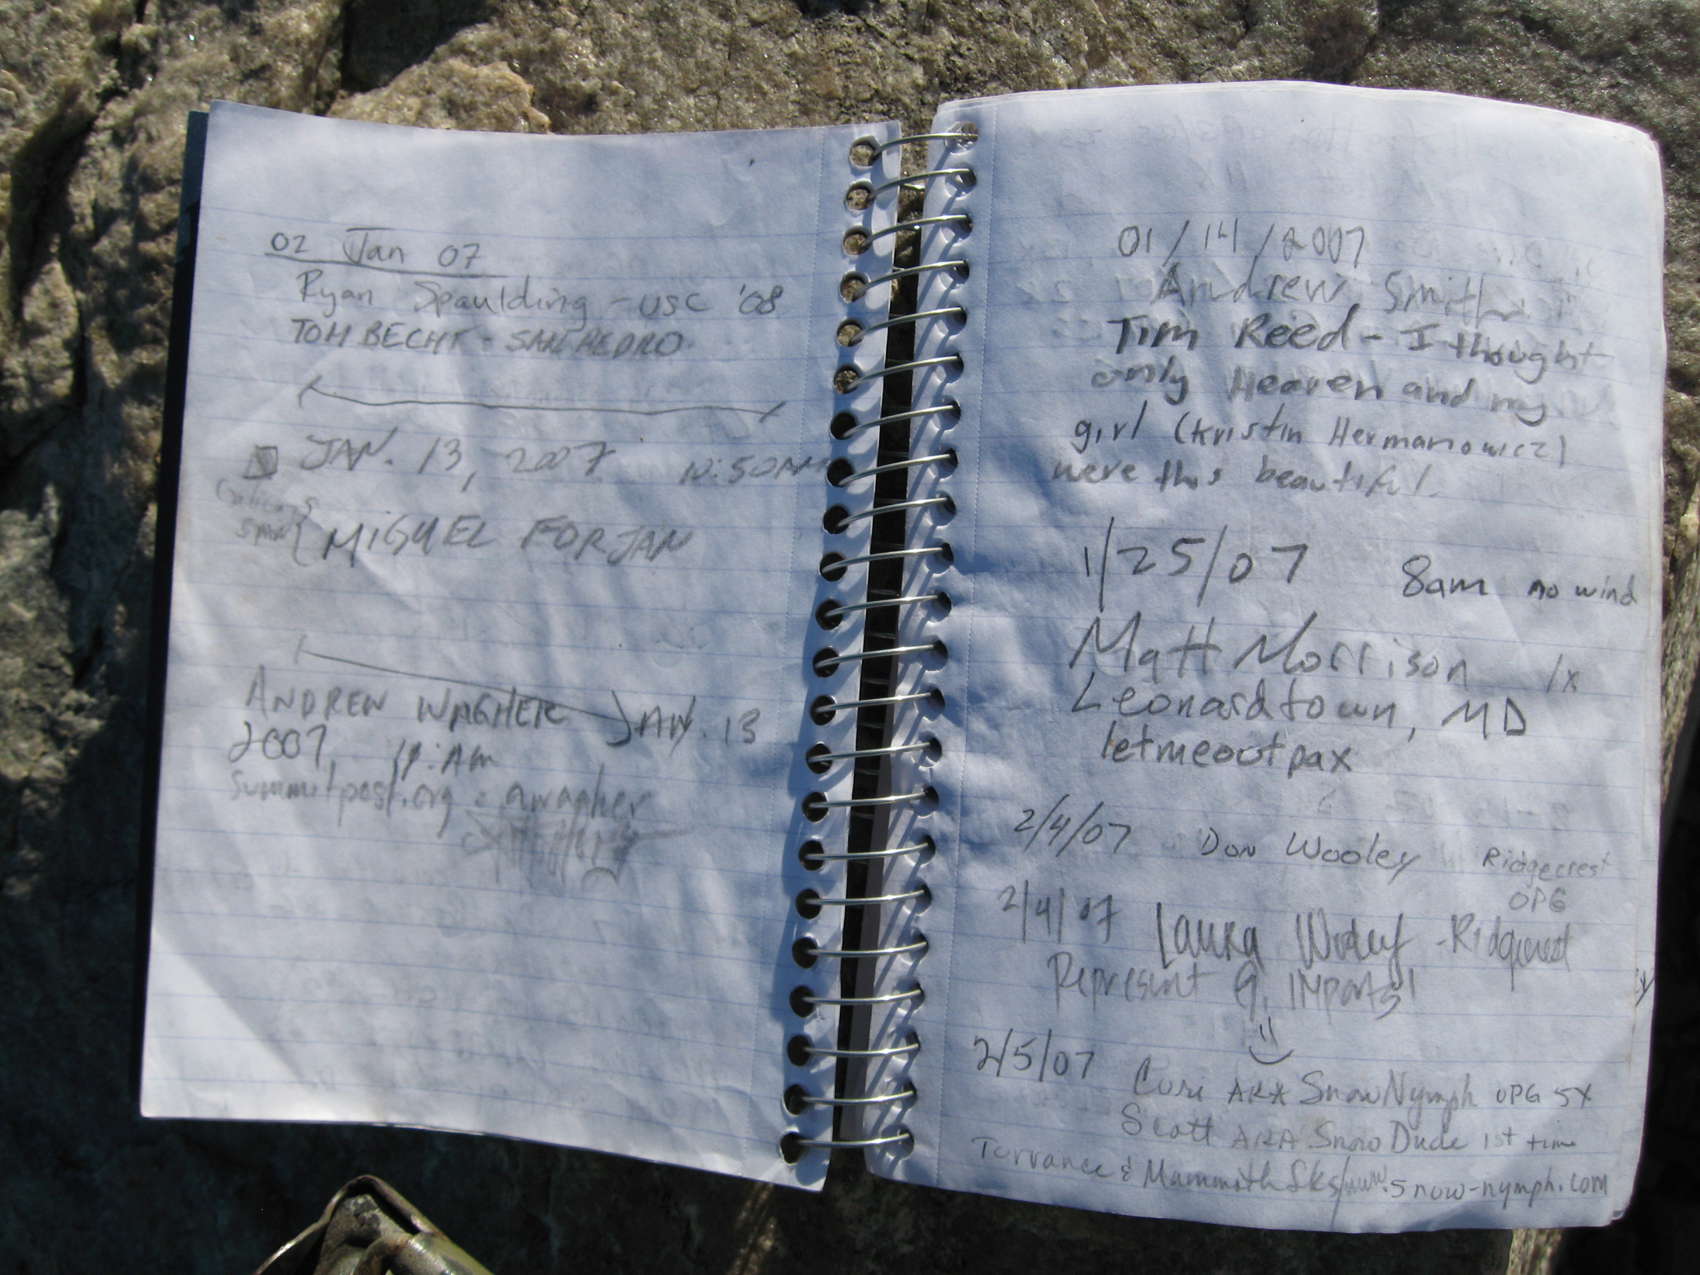 02 Jan 07
Ryan Spaulding - USC '08
TOM BECHT - SAN PEDRO
JAN. 13, 2007 10:50AM
MIGUEL FORJAN
ANDREW WAGHER JAN. 13
2007, AM
Summitpost.org awagher
01/14/2007
Andrew Smith
Tim Reed - I thought
only Heaven and my
girl (Kristin Hermanowicz)
were this beautiful.
1/25/07 8am no wind
Matt Morrison 1x
Leonardtown, MD
letmeoutpax
2/4/07 Don Wooley Ridgecrest
OPG
2/4/07 Laura Wooley - Ridgecrest
Represent G, IMports!
2/5/07 Cori AKA SnowNymph OPG 5X
Scott AKA Snow Dude 1st time
Torrance & Mammoth Lks/www.snow-nymph.com